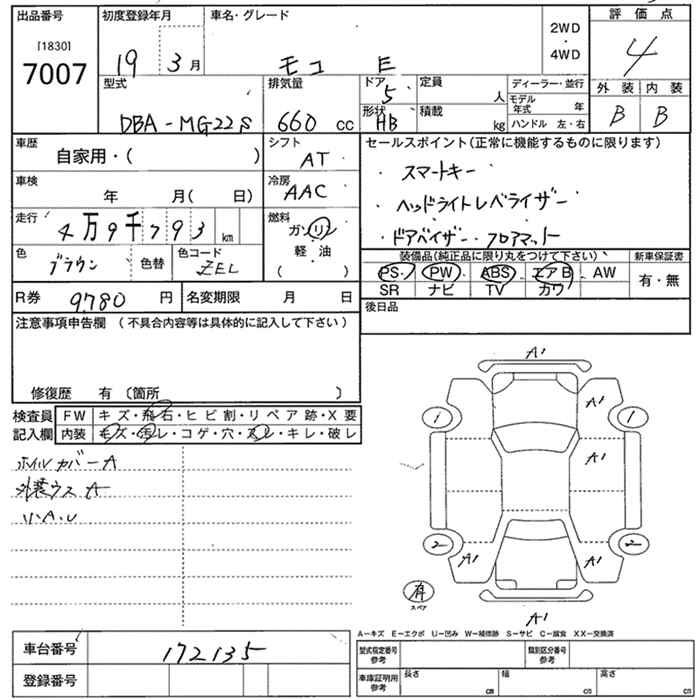 出品番号 初度登録年月 車名・グレード 評価点
[1830]
7007
19 3月 モコ E 2WD・4WD 4
型式 排気量 ドア 定員 ディーラー・並行 外装 内装
DBA-MG22S 660 cc 5 人 モデル年式 年 B B
形状 積載 ハンドル 左・右
HB kg
車歴 シフト セールスポイント(正常に機能するものに限ります)
自家用・( ) AT
・スマートキー
車検 冷房
年 月( 日) AAC
・ヘッドライトレベライザー
走行 燃料
4万9千793 km ガソリン
・ドアバイザー・フロアマット
色 色コード 軽油
ブラウン 色替 ZEL ( )
装備品(純正品に限り丸をつけて下さい) 新車保証書
PS PW ABS エアB AW 有・無
SR ナビ TV カワ
R券 9780 円 名変期限 月 日
後日品
注意事項申告欄 (不具合内容等は具体的に記入して下さい)
修復歴 有〔箇所 〕
検査員 FW キズ・飛石・ヒビ割・リペア跡・X要
記入欄 内装 キズ・汚レ・コゲ・穴・スレ・キレ・破レ
ホイルカバーA
外装ウスA
小A.U
A1
A1
1 1
A1
2 2
A1 A1
有
スペア
A1
A-キズ E-エクボ U-凹み W-補修跡 S-サビ C-腐食 XX-交換済
車台番号 172135
型式指定番号 参考 類別区分番号 参考
登録番号
車庫証明用 参考 長さ cm 幅 cm 高さ cm